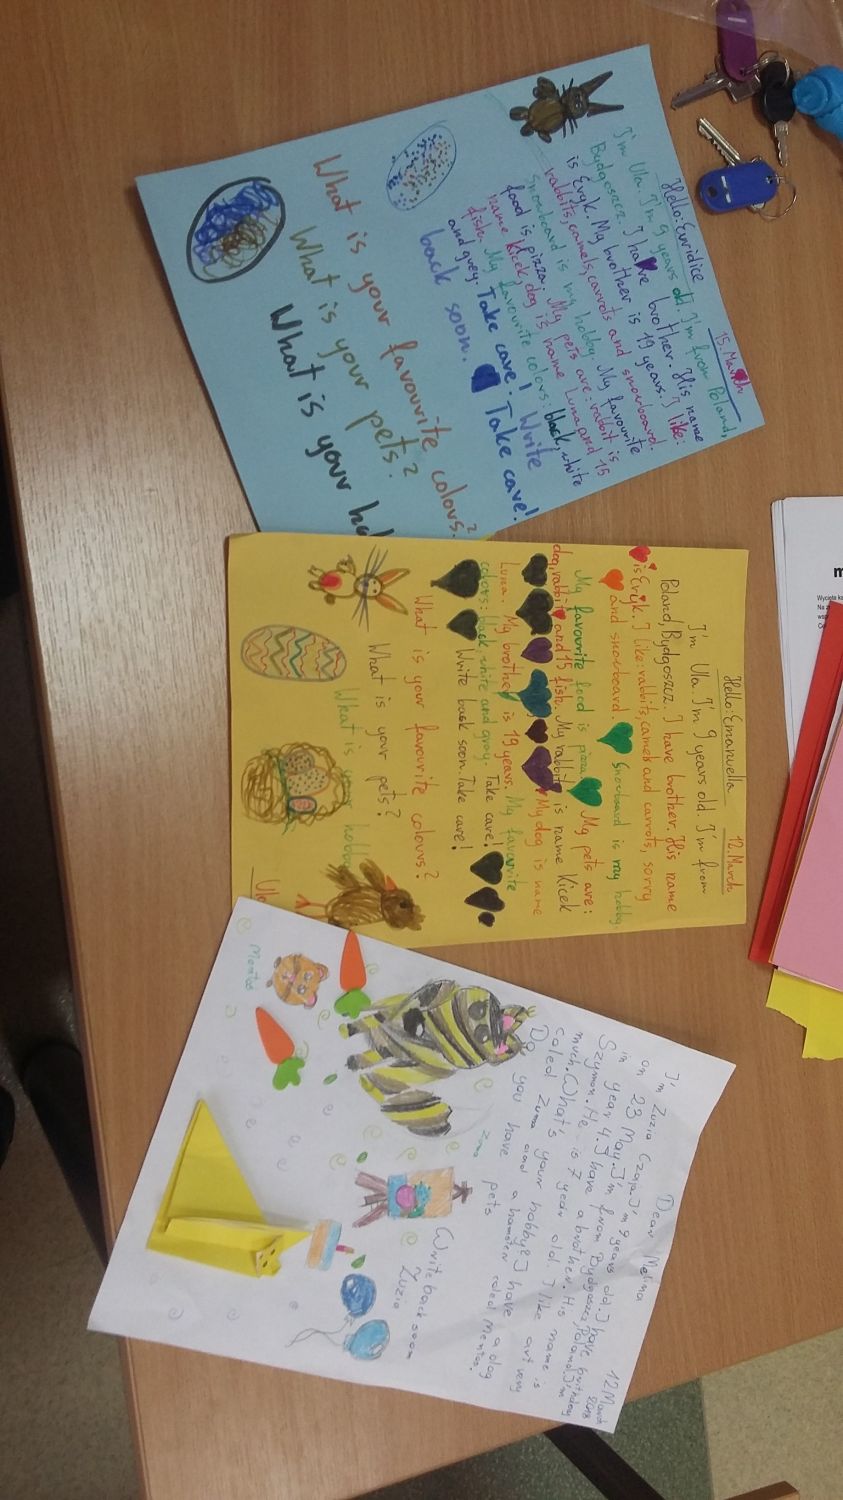 15.March
Hello:Euridice
I'm Ula. I'm 9 years old. I'm from Poland,
Bydgoszcz. I have brother. His name
is Eryk. My brother is 19 years. I like:
rabbits, camels, carrots and snowboard.
Snowboard is my hobby. My favourite
food is pizza. My pets are: rabbit is
name Kicek dog is name Luna and 15
fish. My favourite colors: black, white
and grey. Take care! Write
back soon. Take care!
What is your favourite colors?
What is your pets?
What is your ho
12.March
Hello:Emanuella
I'm Ula. I'm 9 years old. I'm from
Poland, Bydgoszcz. I have brother. His name
is Eryk. I like: rabbits, camels and carrots, sorry
and snowboard. Snowboard is my hobby
My favourite food is pizza. My pets are:
dog, rabbit and 15 fish. My rabbit is name Kicek
My dog is name
Luna. My brother is 19 years. My favourite
colors: black, white and gray. Take care!
Write back soon. Take care!
What is your favourite colours?
What is your pets?
What is your hobby
Ula
12 March
2018
Dear Melina
I'm Zuzia Czaja. I'm 9 years old. I have birthday
on 23 May. I'm from Bydgoszcz, Poland. I'm
in year 4. I have a brother. His name is
Szymon. He is 7 year old. I like art very
much. What's your hobby? I have a dog
caled Zuma and a hamster caled Mentos.
Do you have pets
Write back soon
Zuzia
Zuma
Mentos